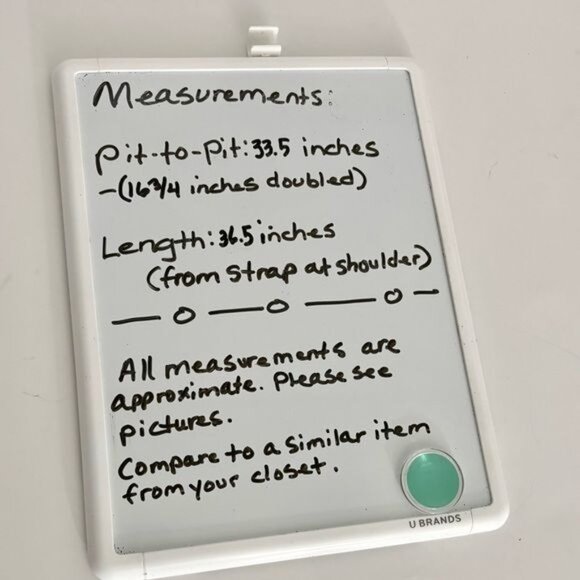 Measurements:
Pit-to-Pit: 33.5 inches
-(16 3/4 inches doubled)
Length: 36.5 inches
(from strap at shoulder)
All measurements are
approximate. Please see
pictures.
Compare to a similar item
from your closet.
U BRANDS